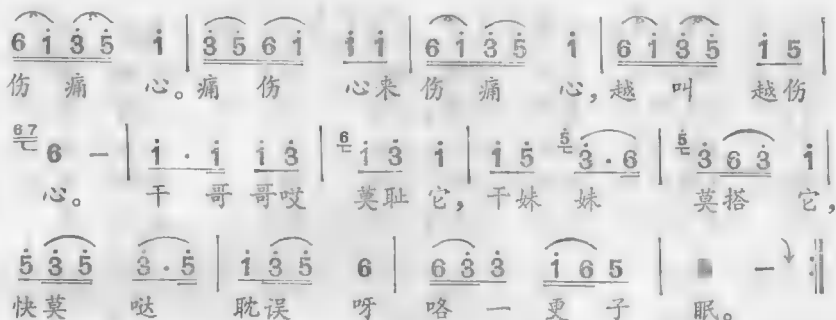 6 i 3 5 i | 3 5 6 i i i | 6 i 3 5 i | 6 i 3 5 i 5 |
伤 痛 心。痛 伤 心来 伤 痛 心, 越 叫 越伤
67 6 — | i · i i 3 | 6 i 3 i | i 5 5 3 · 6 | 5 3 6 3 i |
心。 干 哥 哥哎 莫耻 它, 干妹 妹 莫搭 它,
5 3 5 3 · 5 | i 3 5 6 | 6 3 3 i 6 5 | — :||
快莫 哒 耽误 呀 咯 一 更 子 眠。